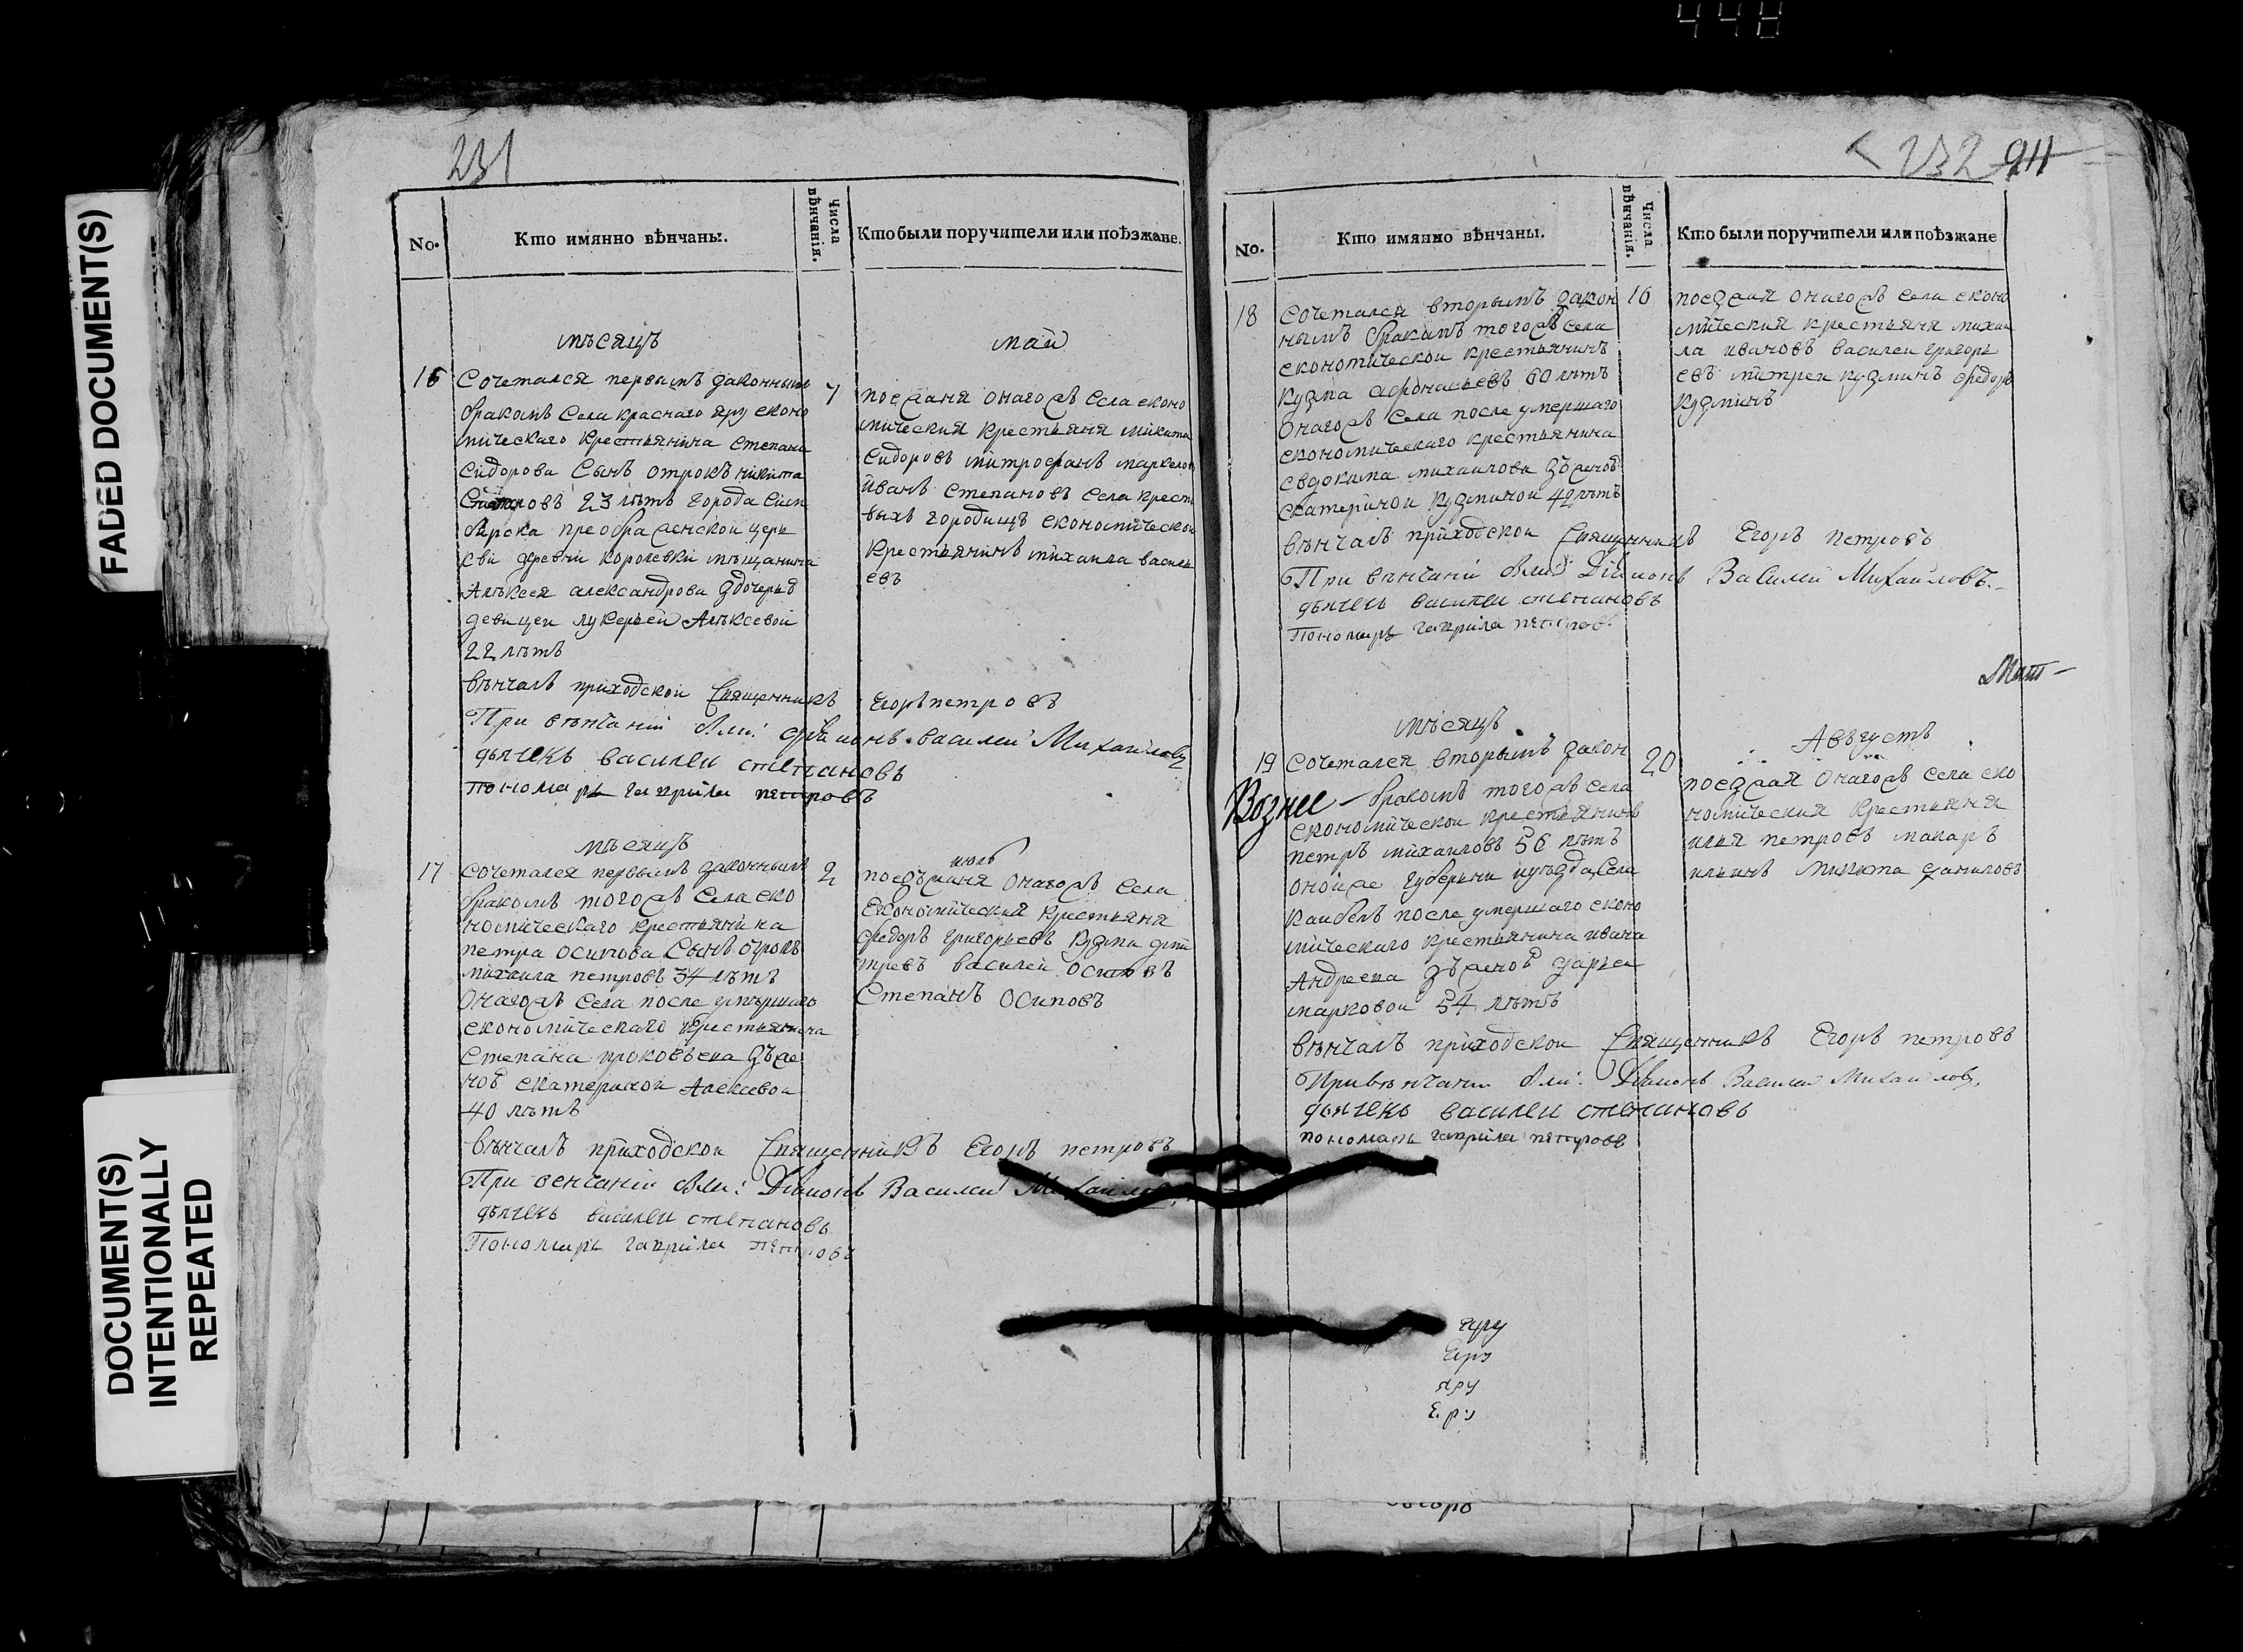 448
FADED DOCUMENT(S)
DOCUMENT(S)
INTENTIONALLY
REPEATED
231
No.
Кто имянно вѣнчаны.
Числа вѣнчанія.
Кто были поручители или поѣзжане.
мѣсяцъ
май
16
Сочетался первымъ законнымъ
бракомъ Села краснаго яру еконо
мическаго крестьянина степана
Сидорова Сынъ отрокъ никита
23 лѣтъ города Сим
бирска преображенской цер
кви деревни королевки мѣщанина
Алѣксея александрова здочерью
девицеи лукерьеи Алѣксевои
22 лѣтъ
7
поезжаня онагожъ Села еконо
мическия крестьяня никита
Сидоровъ митрофанъ маркелов
иванъ Степановъ Села крест
выхъ городищъ економическои
крестьянинъ михаила василь
евъ
вѣнчалъ приходскои Священникъ Егоръ петровъ
При вѣнчании были: диаионъ василеи Михаиловъ
дьячекъ василеи степановъ
пономарь гаврила петровъ
мѣсяцъ
июль
17
сочетался первымъ законнымъ
бракомъ тогожъ Села еко
номическаго крестьянина
петра осипова Сынъ отрокъ
михаила петровъ 34 лѣтъ
онагожъ Села после умѣршаго
економическаго крестьянина
Степана прокофьева зъже
ною екатериной Алексевои
40 лѣтъ
2
поезъжаня онагожъ Села
Економическия крестьяня
федоръ григорьевъ кузма дми
тревъ василеи осиповъ
Степанъ осиповъ
вѣнчалъ приходскои Священникъ Егоръ петровъ
При венчании были: Дiаконъ Василеи Михаиловъ
дьячекъ василеи степановъ
Пономарь гаврила петровъ
232
No.
Кто имянно вѣнчаны.
Числа вѣнчанія.
Кто были поручители или поѣзжане
18
Сочетался вторымъ закон
нымъ бракомъ тогожъ Села
економическои крестьянинъ
кузма афонасьевъ 60 лѣтъ
онагожъ Села после умершаго
економическаго крестьянина
евдокима михаилова зъженою
екатериной кузминой 42 лѣтъ
16
поезжая онагожъ Села еконо
мическия крестьяня михаи
ла ивановъ василеи григорь
евъ митреи кузминъ федоръ
кузминъ
вѣнчалъ приходскои Священникъ Егоръ петровъ
При вѣнчании были Дiаконъ Василеи Михаиловъ
дьячекъ василеи степановъ
Пономарь гаврила петровъ
мѣсяцъ
Августъ
19
сочетался вторымъ закон
Вознес бракомъ тогожъ села
економическои крестьянинъ
петръ михаиловъ 56 лѣтъ
онойже губерьни иуѣзда Села
каибелъ после умершаго еконо
мическаго крестьянина ивана
Андреева зъженою дарьеи
марковои 54 лѣтъ
20
поезжая онагожъ Села еко
номическия крестьяня
илья петровъ макаръ
ильинъ никита даниловъ
вѣнчалъ приходскои Священникъ Егоръ петровъ
При вѣнчании были: Дiаконъ Василеи Михаиловъ
дьячекъ василеи степановъ
пономарь гаврила петровъ